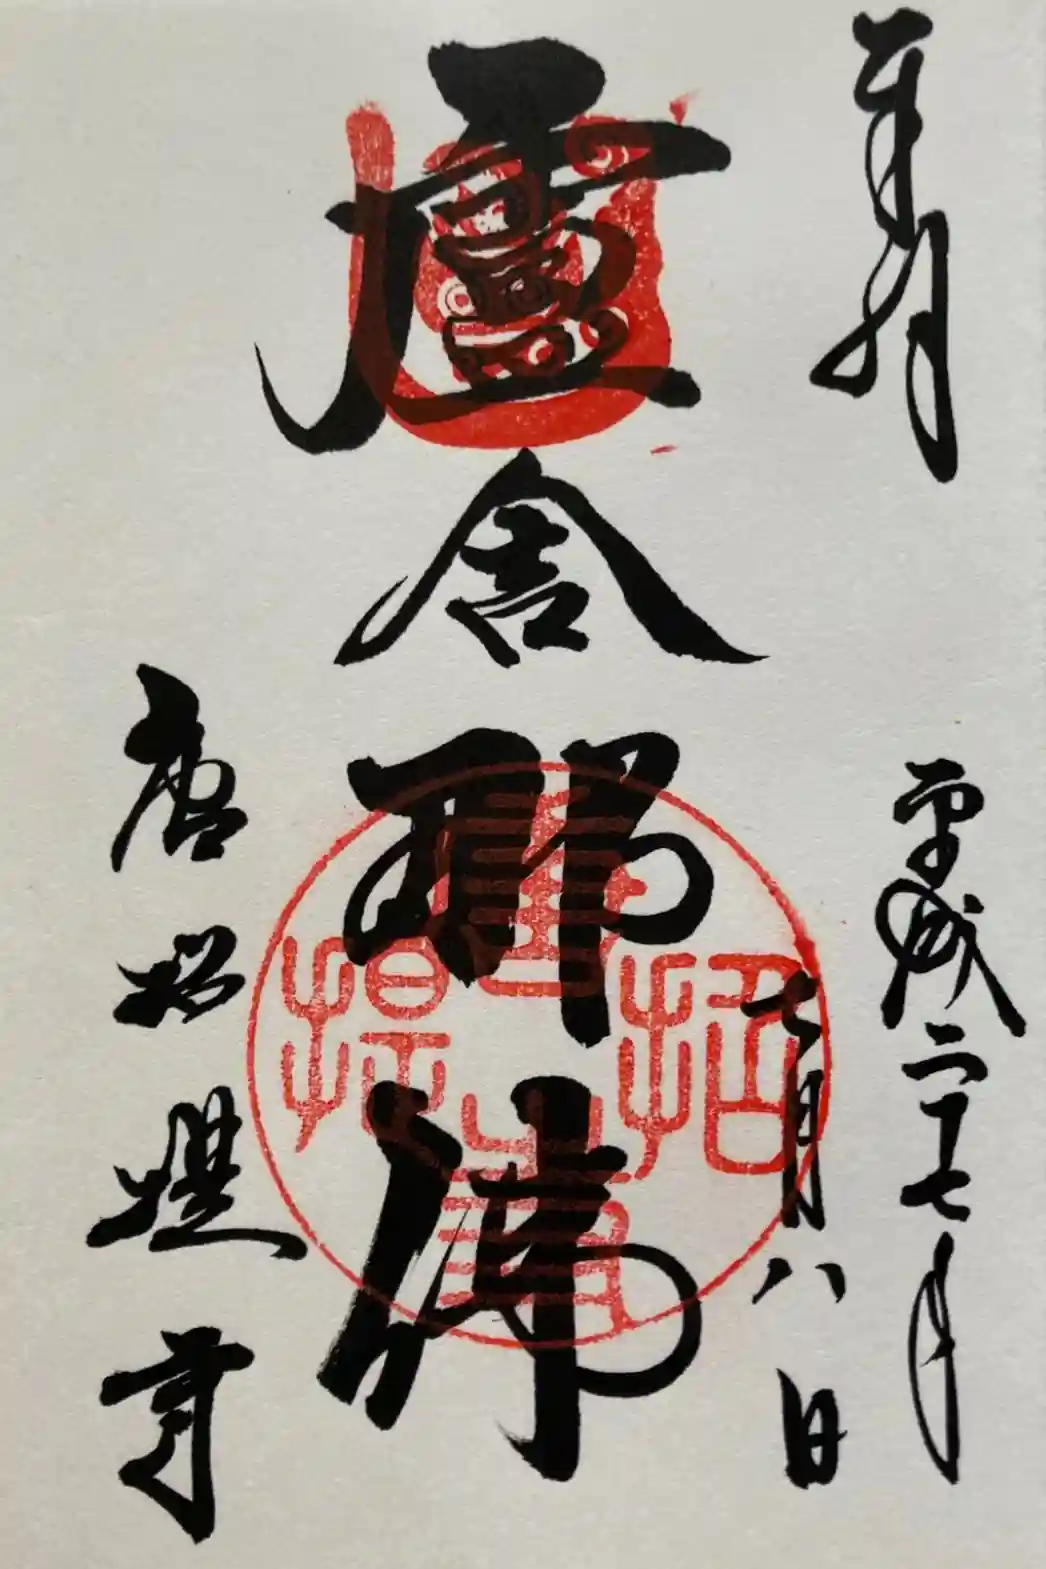 奉拝
平成二十七年
七月八日
盧舎那佛
唐招提寺